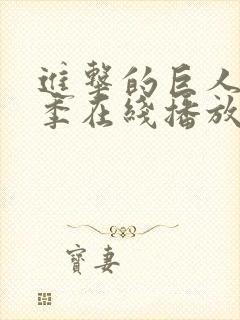 進擊的巨人
季在綫播放
寶妻